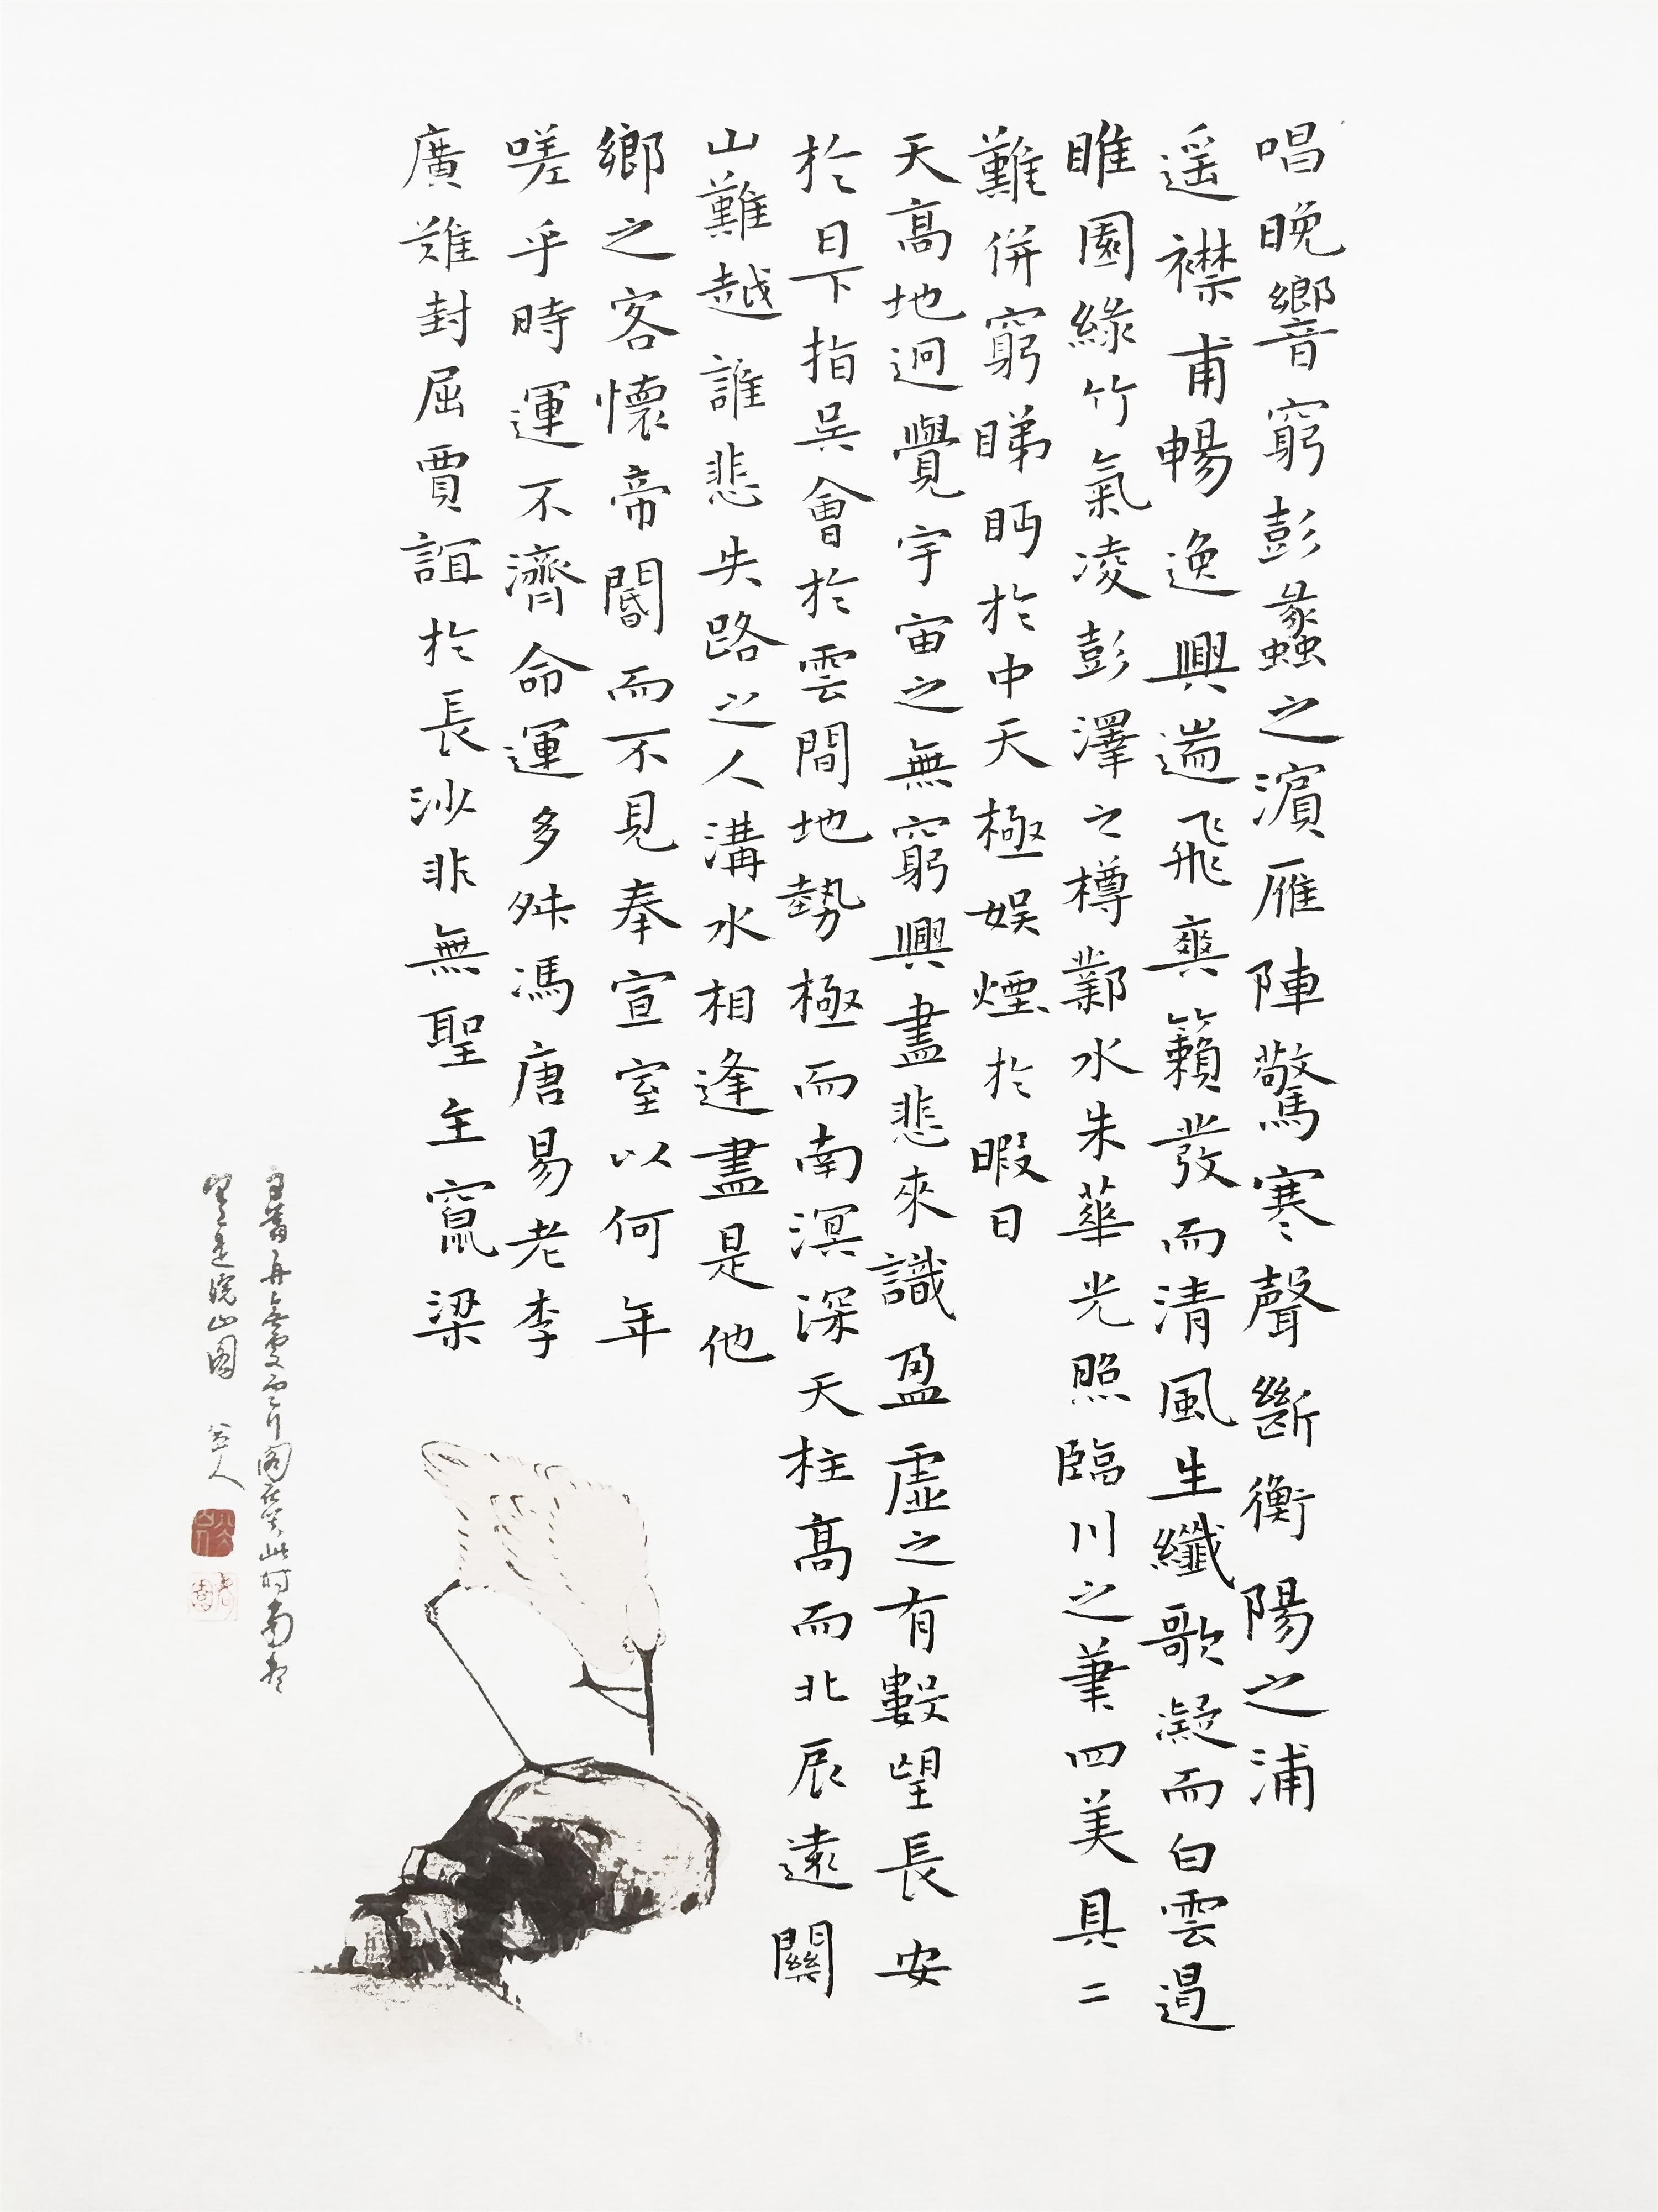 唱晚響窮彭蠡之濱雁陣驚寒聲斷衡陽之浦
遥襟甫暢逸興遄飛爽籟發而清風生纖歌凝而白雲遏
睢園綠竹氣凌彭澤之樽鄴水朱華光照臨川之筆四美具二
難併窮睇眄於中天極娛煙於暇日
天高地迥覺宇宙之無窮興盡悲來識盈虛之有數望長安
於日下指吳會於雲間地勢極而南溟深天柱高而北辰遠關
山難越誰悲失路之人溝水相逢盡是他
鄉之客懷帝閽而不見奉宣室以何年
嗟乎時運不濟命運多舛馮唐易老李
廣難封屈賈誼於長沙非無聖主竄梁
山圖 八大山人